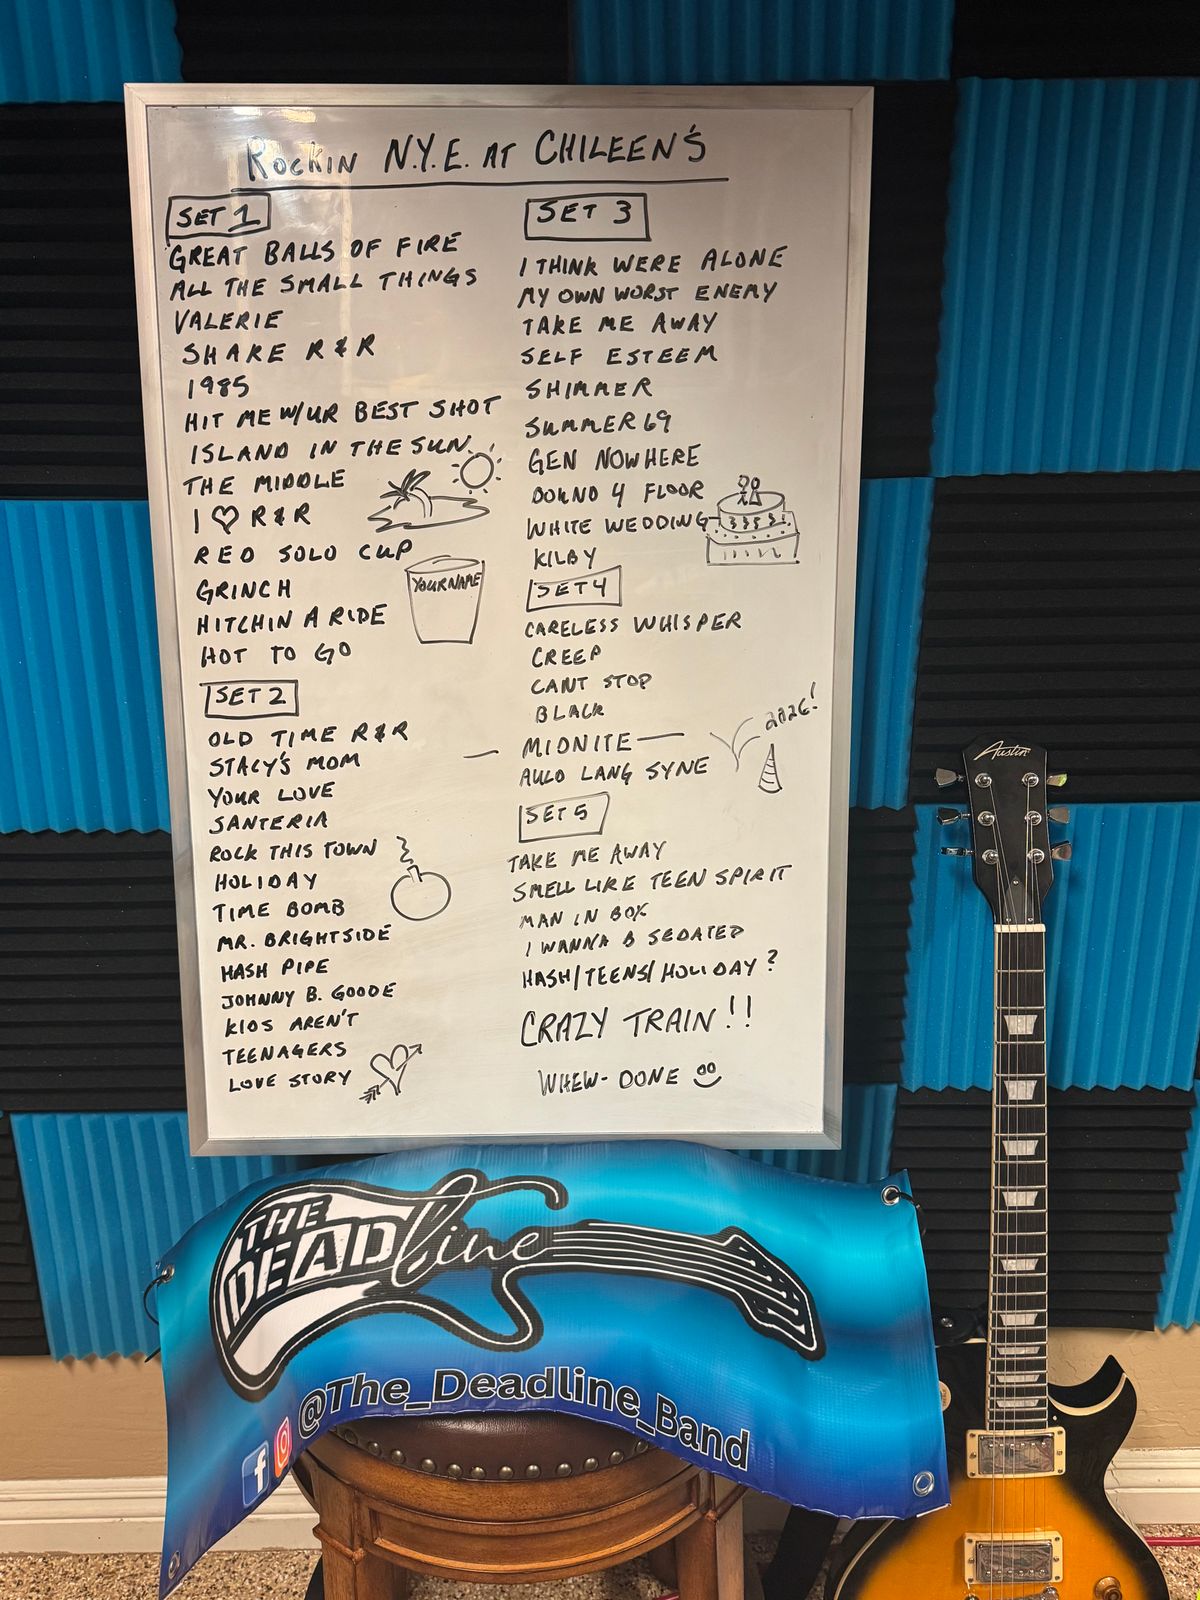 ROCKIN N.Y.E. AT CHILEEN'S
SET 1
GREAT BALLS OF FIRE
ALL THE SMALL THINGS
VALERIE
SHAKE R & R
1985
HIT ME W/UR BEST SHOT
ISLAND IN THE SUN
THE MIDDLE
I ♡ R & R
RED SOLO CUP
YOUR NAME
GRINCH
HITCHIN A RIDE
HOT TO GO
SET 2
OLD TIME R & R
STACY'S MOM
YOUR LOVE
SANTERIA
ROCK THIS TOWN
HOLIDAY
TIME BOMB
MR. BRIGHTSIDE
HASH PIPE
JOHNNY B. GOODE
KIDS AREN'T
TEENAGERS
LOVE STORY
SET 3
I THINK WERE ALONE
MY OWN WORST ENEMY
TAKE ME AWAY
SELF ESTEEM
SHIMMER
SUMMER 69
GEN NOWHERE
DOWND 4 FLOOR
WHITE WEDDING
KILBY
SET 4
CARELESS WHISPER
CREEP
CANT STOP
BLACK
— MIDNITE —
2026!
AULD LANG SYNE
SET 5
TAKE ME AWAY
SMELL LIKE TEEN SPIRIT
MAN IN BOX
I WANNA B SEDATED
HASH/TEENS/HOLIDAY?
CRAZY TRAIN!!
WHEW- DONE
Austin
THE
DEADline
@The_Deadline_Band